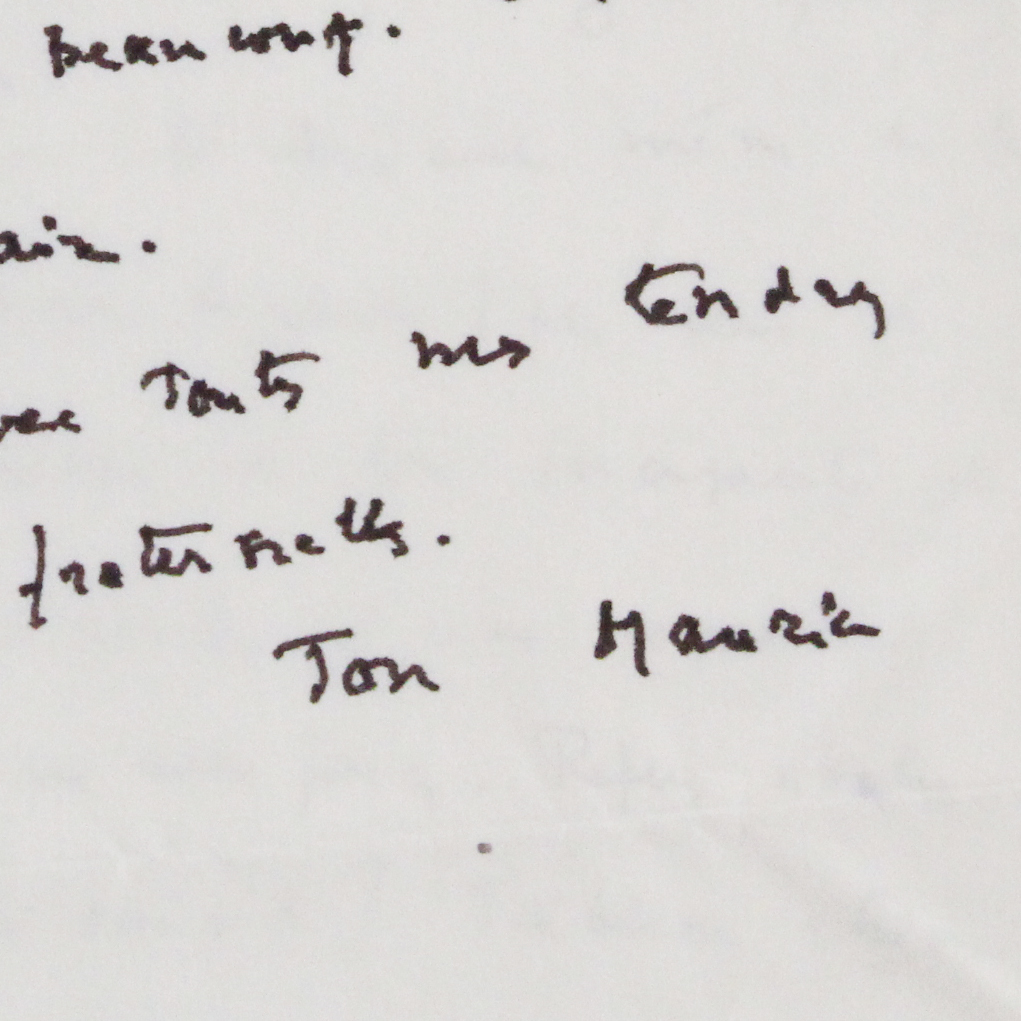 beaucoup.
aire.
vec toutes mes tendres
fraternelles.
Ton Maurice